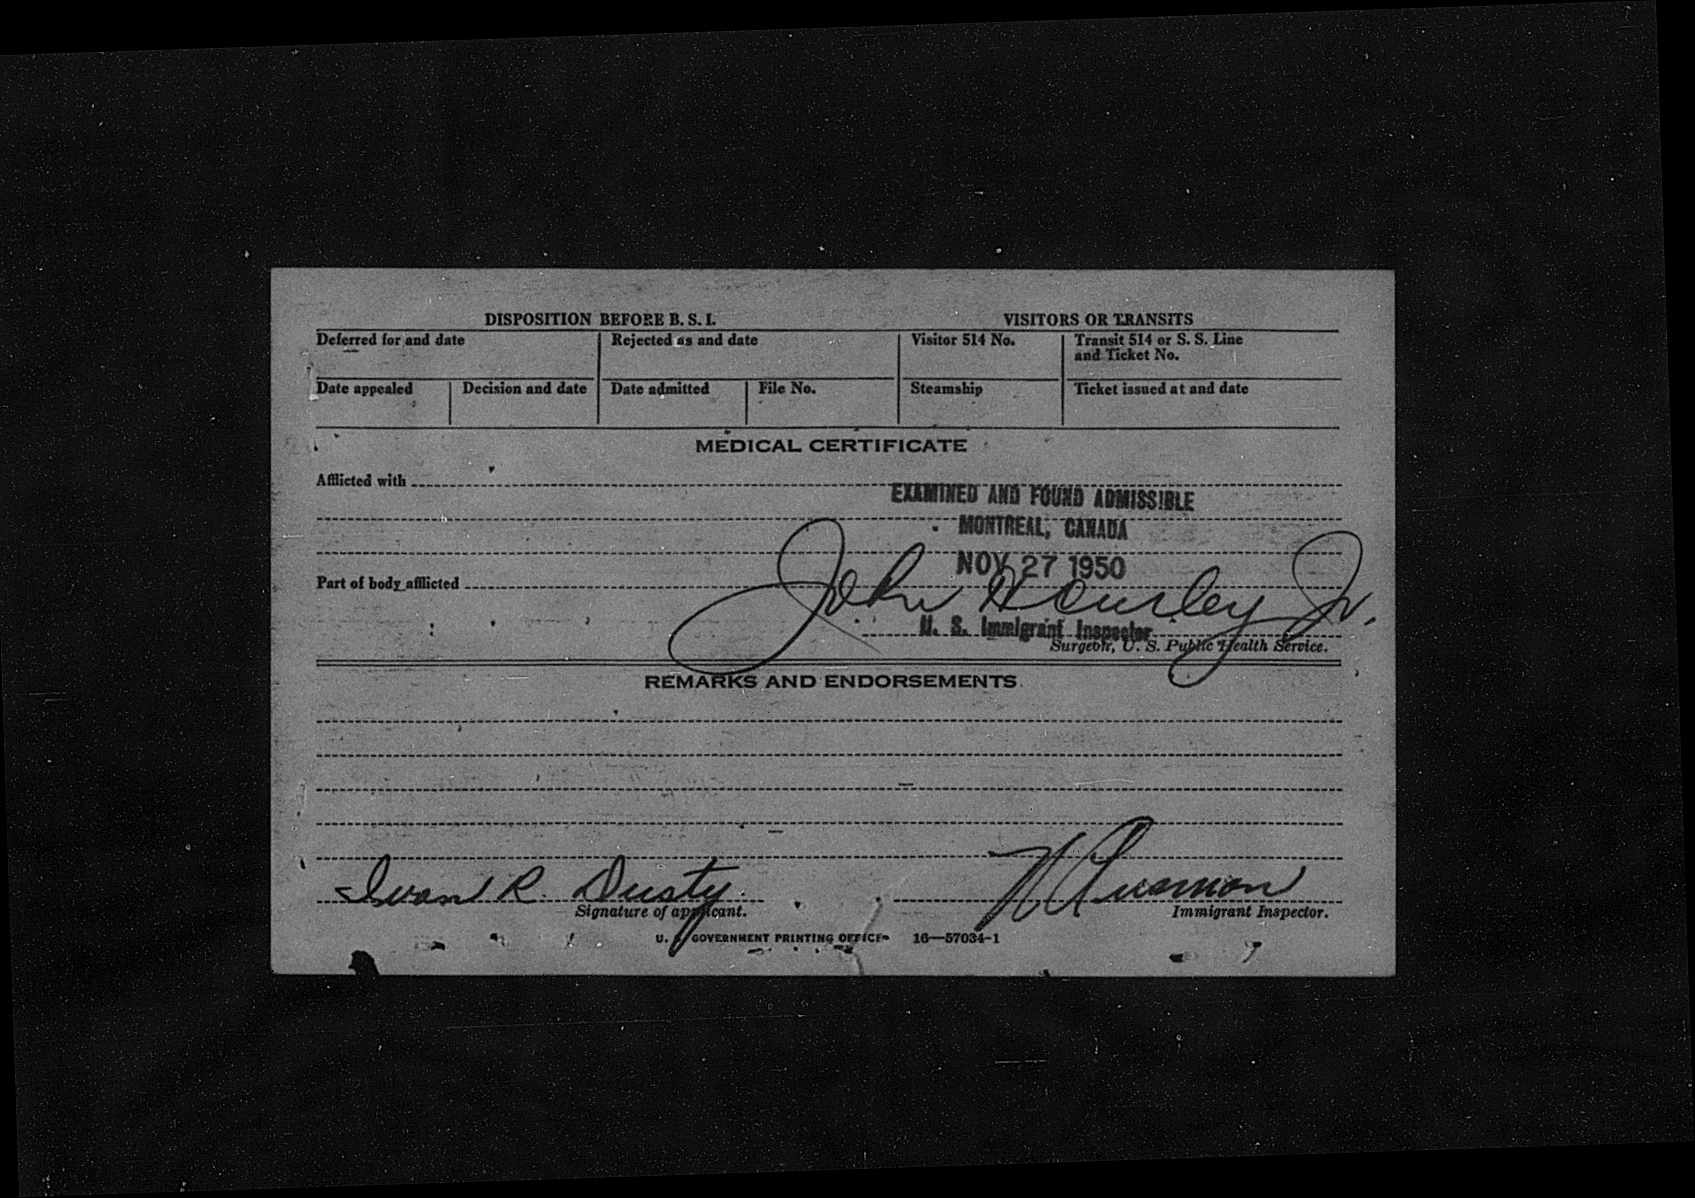 DISPOSITION BEFORE B. S. I.
VISITORS OR TRANSITS
Deferred for and date
Rejected as and date
Visitor 514 No.
Transit 514 or S. S. Line
and Ticket No.
Date appealed
Decision and date
Date admitted
File No.
Steamship
Ticket issued at and date
MEDICAL CERTIFICATE
Afflicted with
EXAMINED AND FOUND ADMISSIBLE
MONTREAL, CANADA
NOV 27 1950
Part of body afflicted
John Jr.
U. S. Immigrant Inspector
Surgeon, U. S. Public Health Service.
REMARKS AND ENDORSEMENTS
Ivan R. Dusty
Signature of applicant.
Immigrant Inspector.
U. S. GOVERNMENT PRINTING OFFICE 16—57034-1